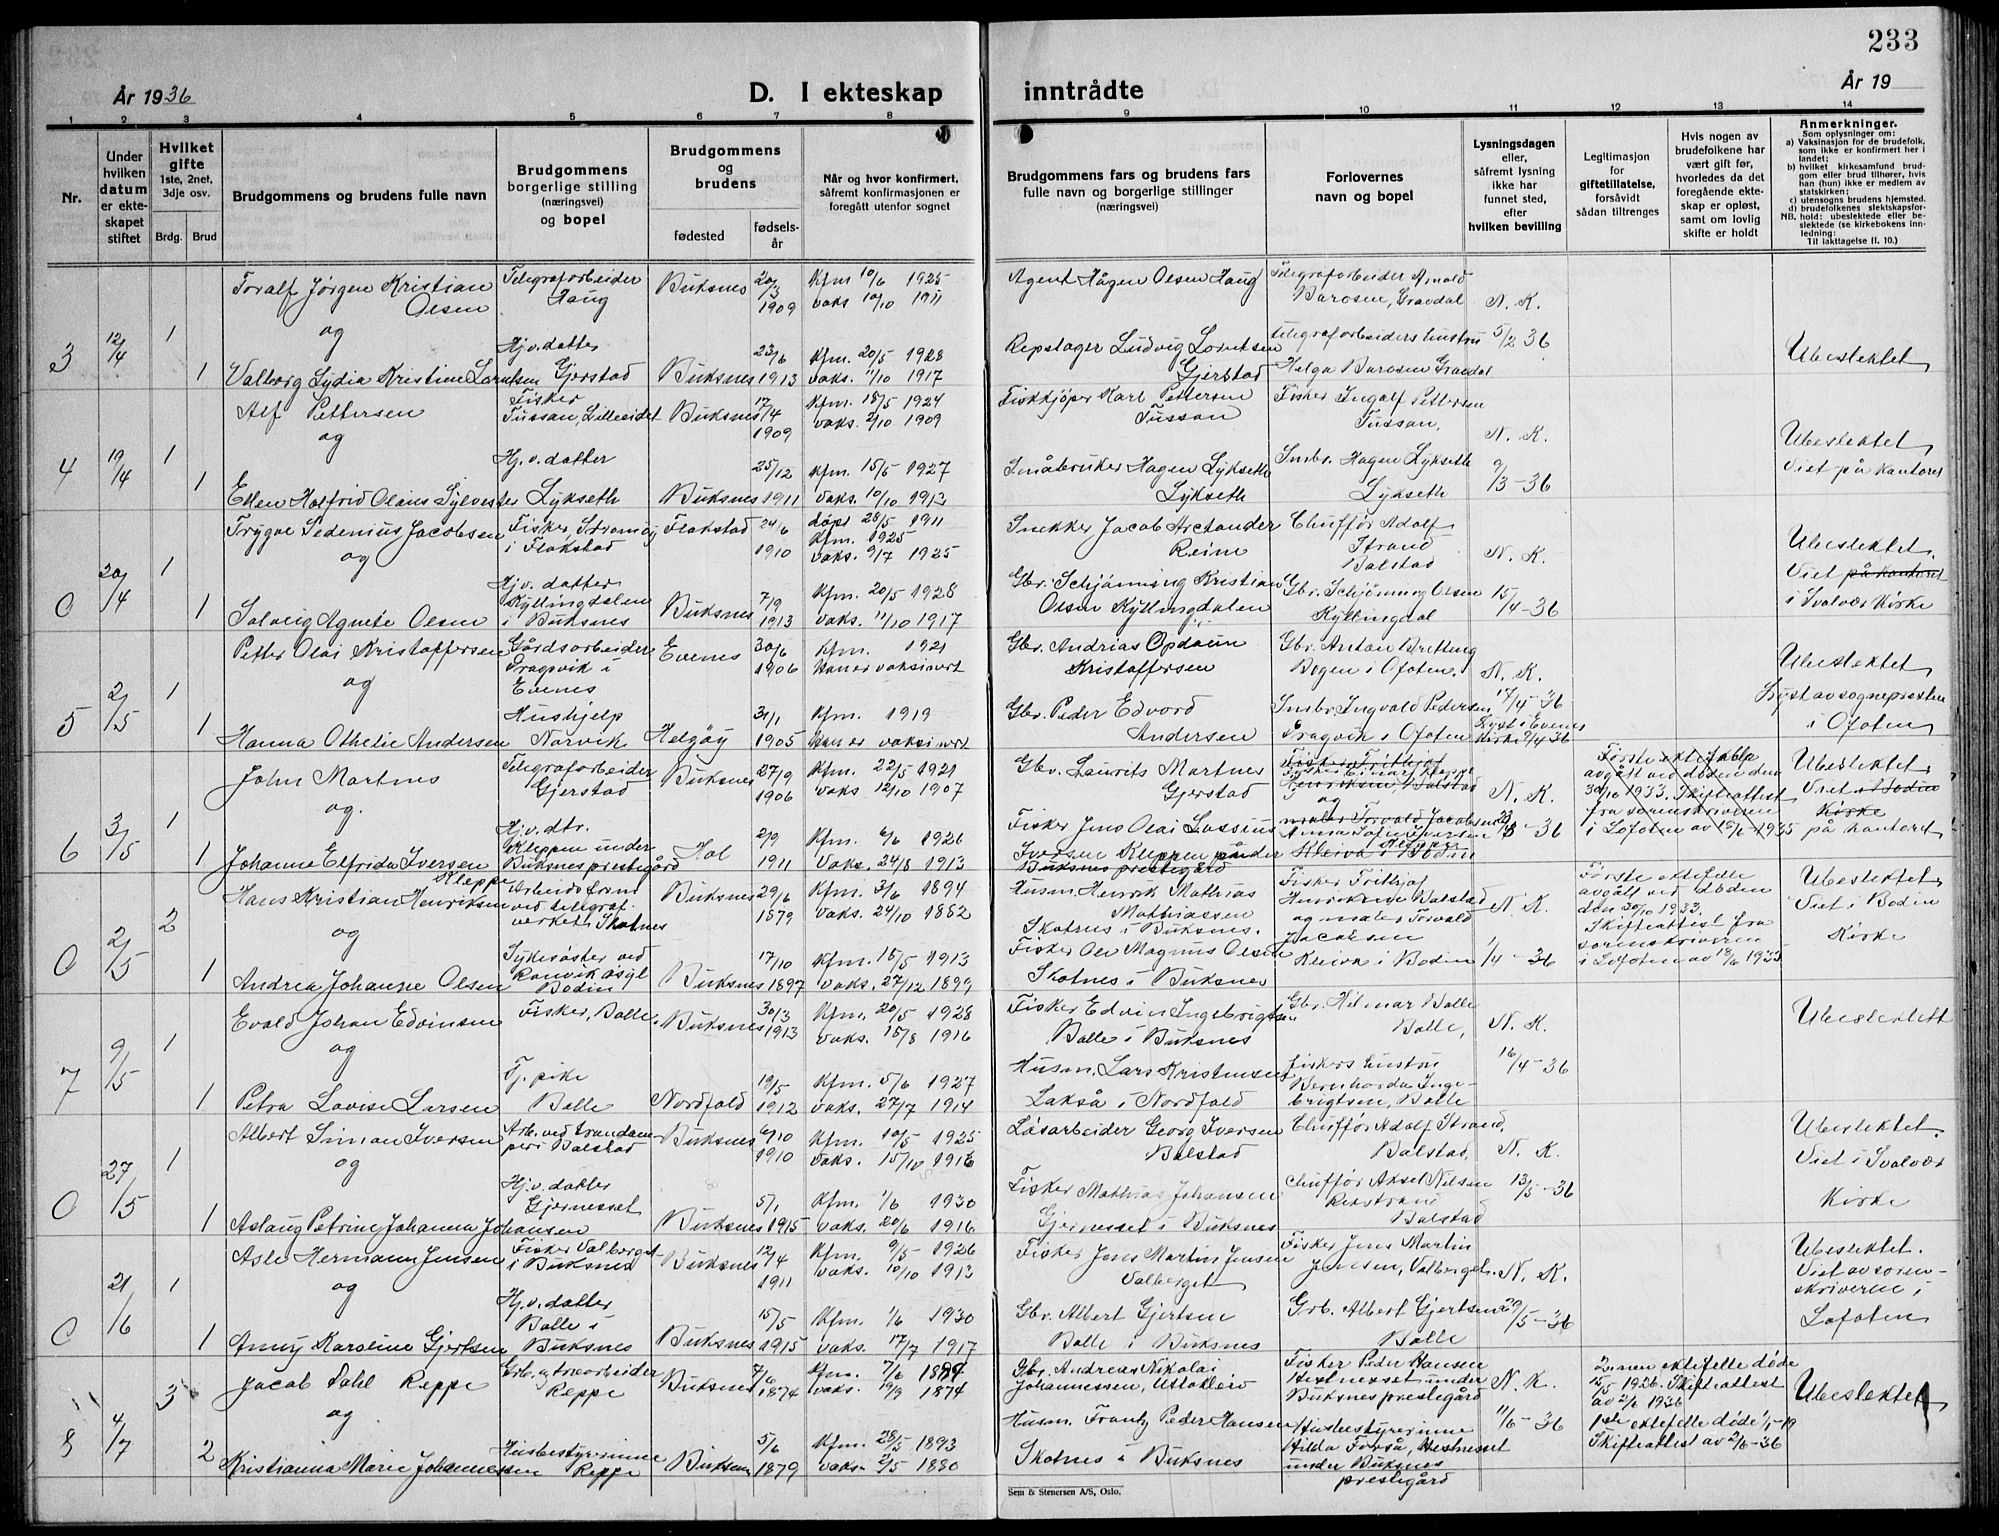 233
År 1936
D. I ekteskap
inntrådte
År 19
1 2 3 4 5 6 7 8
9 10 11 12 13 14
Nr.
Under hvilken datum er ekteskapet stiftet
Hvilket gifte
1ste, 2net, 3dje osv.
Brdg.
Brud
Brudgommens og brudens fulle navn
Brudgommens borgerlige stilling (næringsvei) og bopel
Brudgommens og brudens
fødested
fødselsår
Når og hvor konfirmert, såfremt konfirmasjonen er foregått utenfor sognet
Brudgommens fars og brudens fars fulle navn og borgerlige stillinger (næringsvei)
Forlovernes navn og bopel
Lysningsdagen eller, såfremt lysning ikke har funnet sted, efter hvilken bevilling
Legitimasjon for giftetillatelse, forsåvidt sådan tiltrenges
Hvis nogen av brudefolkene har vært gift før, hvorledes da det foregående ekteskap er opløst, samt om lovlig skifte er holdt
Anmerkninger.
Som oplysninger om:
a) Vaksinasjon for de brudefolk, som ikke er konfirmert her i landet;
b) hvilket kirkesamfund brudgom eller brud tilhører, hvis han (hun) ikke er medlem av statskirken;
c) utensogns brudens hjemsted.
d) brudefolkenes slektskapsforhold: ubeslektede eller beslektede (se kirkebokens innledning:
NB. Til iakttagelse II. 10.)
3 12/4 1 Toralf Jørgen Kristian Olsen Telegrafarbeider Haug Buksnes 20/3 1909 Kfm 10/6 1925 vaks 10/10 1911 Agent Hågen Olsen Haug Telegrafarbeider Arnold Barosen, Gravdal N. K.
og
1 Valborg Lydia Kristine Lorntsen Hj.v. datter Gjerstad Buksnes 23/6 1913 Kfm. 20/5 1928 vaks. 11/10 1917 Repslager Ludvig Lorntsen Gjerstad telegrafarbeiders hustru Helga Barosen Gravdal 5/2 36 Ubeslektet
4 19/4 1 Alf Pettersen Fisker Tussan, Lillesidet Buksnes 17/4 1909 Kfm. 18/5 1924 vaks. 2/10 1909 Fiskkjøper Karl Pettersen Tussan Fisker Ingolf Pettersen Tussan, N. K.
og
1 Ellen Halfrid Olaus Sylvester Hj. v. datter Lykseth Buksnes 25/12 1911 Kfm. 15/5 1927 vaks. 10/10 1913 Småbruker Hagen Lykseth Lykseth Smbr. Hagen Lykseth Lykseth 9/3-36 Ubeslektet Viet på kontoret
0 20/4 1 Trygve Pedenius Jacobsen Fisker, i Flakstad Flakstad 24/6 1910 døpt 28/5 1911 Kfm. 1925 vaks. 9/7 1925 Snekker Jacob Arctander Reine Chufför Adolf Strand Balstad N. K.
og
1 Solveig Agnete Olsen Hj.v. datter Kyllingdalen i Buksnes Buksnes 7/9 1913 Kfm. 20/5 1928 vaks. 11/10 1917 Gbr. Schjønning Kristian Olsen Kyllingdalen Gbr. Schjønning Olsen Kyllingdal 15/4-36 Ubeslektet. Viet på kontoret i Svolvær Kirke
5 2/5 1 Petter Olai Kristoffersen Gårdsarbeider i Evenes Evenes 30/6 1906 Kfm. 1921 Han er vaksinert Gbr. Andrias Opdaun Kristoffersen Gbr. Anton Bretteng Bogen i Ofoten. N. K.
og
1 Hanna Othelie Andersen Hushjelp Narvik Helgøy 31/1 1905 Kfm. 1919 Hun er vaksinert Gbr. Peder Edvard Andersen Smbr. Ingvald Pedersen i Ofoten 17/4-36 Lyst i Evenes Kirke 9/4 36 Ubeslektet Lyst av sogneprestен i Ofoten
6 3/5 1 John Martnes Telegrafarbeider Gjerstad Buksnes 27/9 1906 Kfm. 22/5 1921 vaks 12/10 1907 Gbr. Laurits Martnes Gjerstad N. K.
og.
1 Johanne Elfrida Iversen Kleppe Hj.v. dtr. Kleppen under Buksnes prestegård Hol 2/9 1911 Kfm. 6/6 1926 Vaks. 24/8 1913 Fisker Jens Olai Lassius Iversen Kleppen under Buksnes prestegård 36 Ubeslektet. Viet i Bodin Kirke på kontoret
0 2/5 2 Hans Kristian Henriksen Arbeidsform. ved telegrafverket, Skotnes Buksnes 29/6 1879 Kfm. 3/6 1894 vaks. 24/10 1882 Husm. Henrik Mathias Mathiassen Skotnes i Buksnes. Fisker Frithjof Henriksen Balstad og maler Torvald Jacobsen N. K. Første ektefelle avgått ved døden den 30/10 1933. Skifteattest fra sorenskriveren i Lofoten av 1935
og
1 Andrea Johanne Olsen Sykesøster ved Rønvik asyl Bodin Buksnes 17/10 1897 Kfm. 15/5 1913 vaks. 27/12 1899 Fisker Ole Magnus Olsen Skotnes i Buksnes Kleiva i Bodin 1/4-36 Ubeslektet. Viet i Bodin Kirke
7 9/5 1 Evald Johan Edvinsen Fisker, Balle. Buksnes 30/3 1913 Kfm. 20/5 1928 vaks. 15/8 1916 Fisker Edvin Ingebrigtsen Balle i Buksnes Gbr. Hilmar Balle Balle, N. K. Ubeslektett
og
1 Petra Lovise Larsen Tj. pike Balle Nordfold 19/5 1912 Kfm. 5/6 1927 vaks. 27/7 1914 Husm. Lars Kristensen Lakså i Nordfold Fiskers hustru Bernharda Ingebrigtsen, Balle 16/4-36
0 27/5 1 Albert Simon Iversen Arb. ved trandamperi Balstad Buksnes 6/10 1910 Kfm. 10/5 1925 vaks. 15/10 1916 Løsarbeider Georg Iversen Balstad Chufför Adolf Strand, Balstad, N. K.
og
1 Aslaug Petrine Johanna Johansen Hj.v. datter Gjernesset Buksnes 5/1 1915 Kfm. 1/6 1930 vaks. 20/6 1916 Fisker Mathias Johansen Gjernesset i Buksnes Chufför Aksel Nilsen Balstad 13/5-36 Ubeslektet. Viet i Svolvær Kirke
0 21/6 1 Asle Hermann Jensen Fisker Valberget i Buksnes Buksnes 12/4 1911 Kfm. 9/5 1926 vaks. 10/10 1913 Fisker Jens Martin Jensen Valberget Fisker Jens Martin Jensen, Valberget. N. K.
og
1 Anny Karoline Gjertsen Hj.v. datter Balle i Buksnes Buksnes 15/5 1915 Kfm. 1/6 1930 vaks. 17/7 1917 Gbr. Albert Gjertsen Balle i Buksnes Grb. Albert Gjertsen Balle 29/5-36 Ubeslektet. Viet av sorenskriveren i Lofoten
8 4/7 3 Jacob Dahl Reppe Reppe Buksnes 7/6 1874 Kfm. 7/6 vaks. 1874 Gbr. Andreas Nikolai Johannessen, Uttakleiv Fisker Peder Hansen Hestnesset under Buksnes prestegård N. K. 2nen ektefelle døde 15/5 1926. Skifteattest av 2/6 1936
og
2 Kristianna Marie Johannessen Husbestyrerinne Reppe Buksnes 5/6 1879 Kfm. 28/5 1893 vaks. 2/5 1880 Husm. Frantz Peder Hansen Skotnes i Buksnes Husbestyrerinne Hilda Forså, Hestnesset under Buksnes prestegård 11/6-36 1ste ektefelle døde Skifteattest av 2/6-36 Ubeslektet
Sem & Stenersen A/S, Oslo.